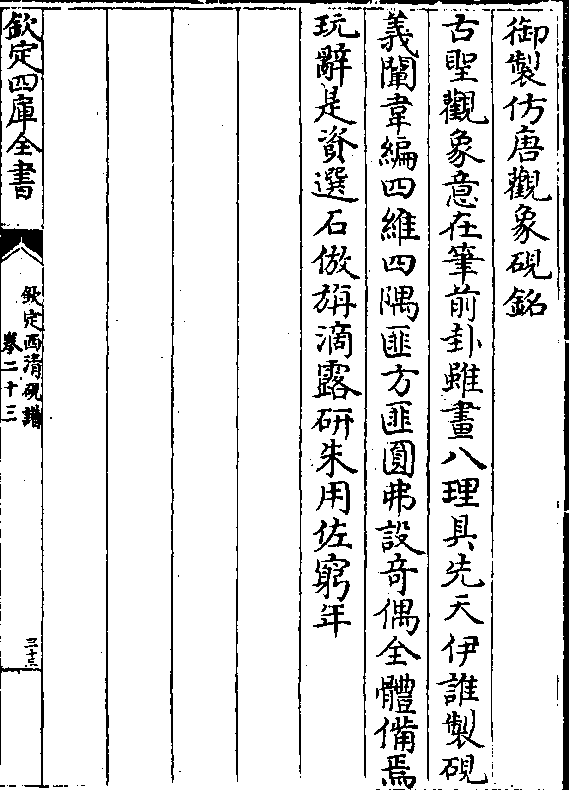 御製仿唐觀象硯銘
古聖觀象意在筆前卦雖畫八理具先天伊誰製硯
義闡韋編四維四隅匪方匪圓弗設奇偶全體備焉
玩辭是資選石倣旃滴露研朱用佐窮年
欽定四庫全書
欽定西清硯譜
卷二十三
三十三